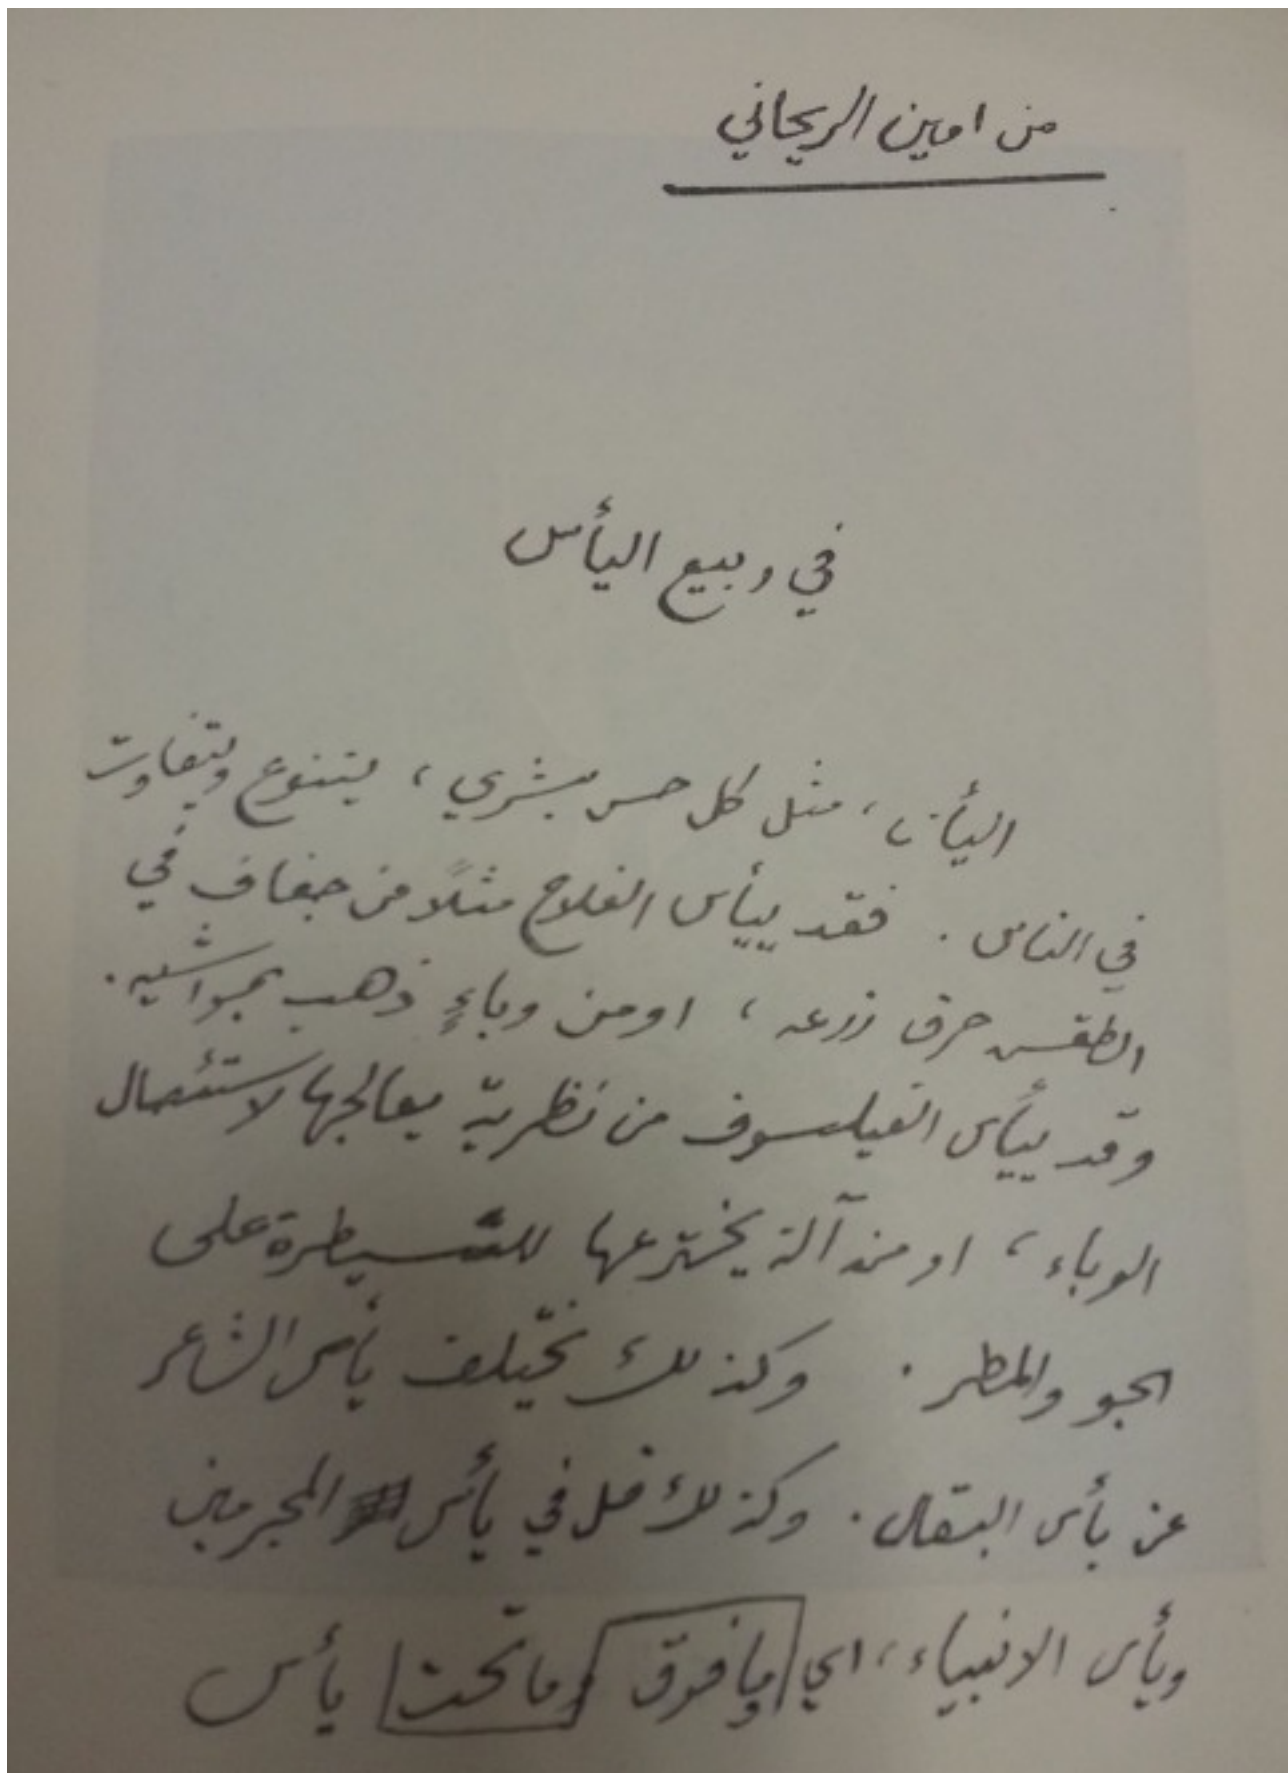 من امين الريحاني
في ربيع اليأس
اليأس، مثل كل حس بشري، يتنوع ويتفاوت
في الناس. فقد ييأس الفلاح مثلاً من جفاف في
الطقس حرق زرعه، او من وباءٍ ذهب بمواشيه.
وقد ييأس الفيلسوف من نظرية يعالجها لاستئصال
الوباء، او من آلة يخترعها للسيطرة على
الجو والمطر. وكذلك يختلف يأس الشاعر
عن يأس البقال. وكذلك قل في يأس المجرمين
ويأس الانبياء، اي ما فوق وما تحت يأس